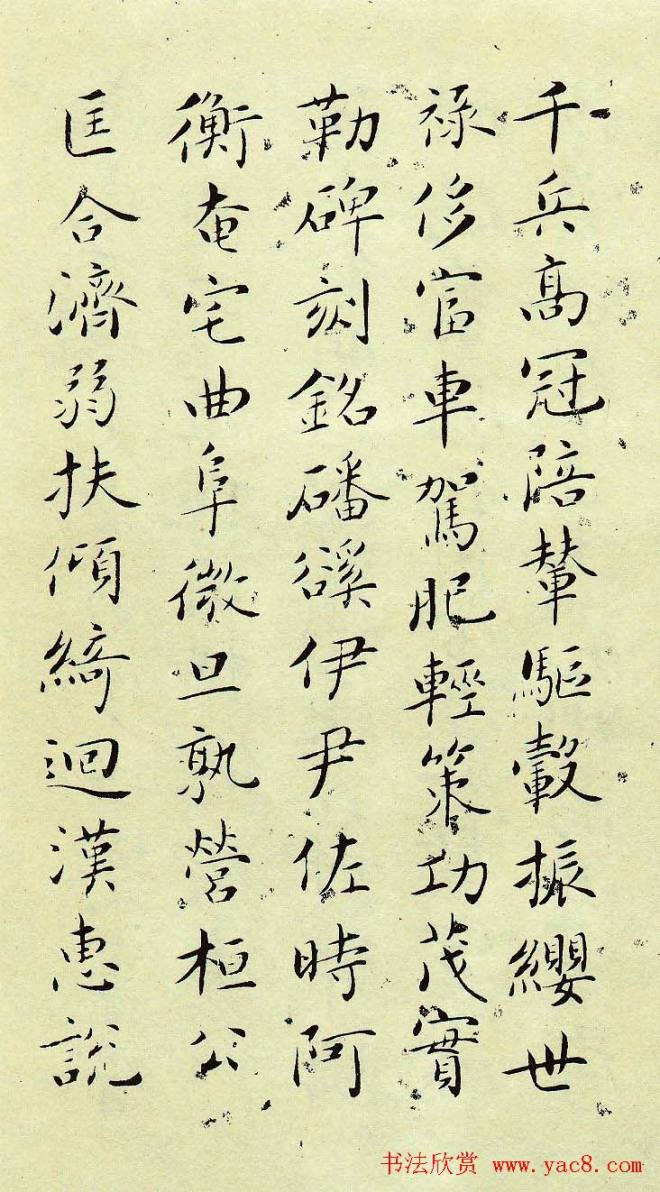 千兵高冠陪輦驅轂振纓世
祿侈富車駕肥輕策功茂實
勒碑刻銘磻谿伊尹佐時阿
衡奄宅曲阜微旦孰營桓公
匡合濟弱扶傾綺迴漢惠説
书法欣赏 www.yac8.com